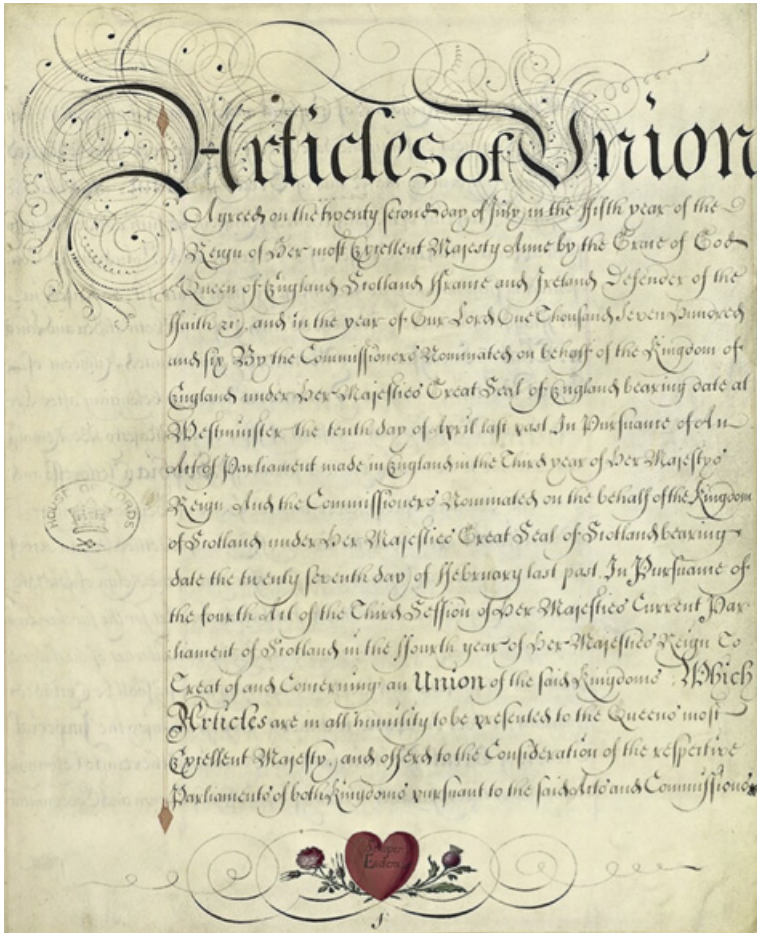 Articles of Union
Agreed on the twenty second day of July in the ffifth year of the
Reign of Her most Excellent Majesty Anne by the Grace of God
Queen of England Scotland ffrance and Ireland Defender of the
ffaith &c. and in the year of Our Lord One Thousand Seven Hundred
and six By the Commissioners Nominated on behalf of the Kingdom of
England under Her Majesties Great Seal of England bearing date at
Westminster the tenth day of April last past In Pursuance of An
Act of Parliament made in England in the Third year of Her Majestys
Reign And the Commissioners Nominated on the behalf of the Kingdom
of Scotland under Her Majesties Great Seal of Scotland bearing
date the twenty seventh day of ffebruary last past In Pursuance of
the fourth Act of the Third Session of Her Majesties Current Par
liament of Scotland in the ffourth year of Her Majesties Reign To
Treat of and Concerning an Union of the said Kingdoms Which
Articles are in all humility to be presented to the Queens most
Excellent Majesty, and offerd to the Consideration of the respective
Parliaments of both Kingdoms pursuant to the said Acts and Commissions
HOUSE OF LORDS
Semper
Eadem